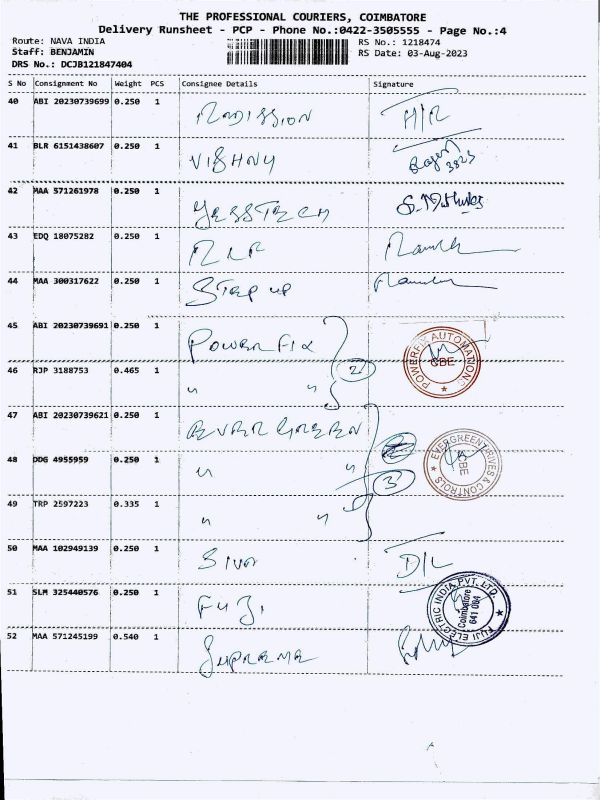 THE PROFESSIONAL COURIERS, COIMBATORE
Delivery Runsheet - PCP - Phone No.:0422-3505555 - Page No.:4
Route: NAVA INDIA RS No.: 1218474
Staff: BENJAMIN RS Date: 03-Aug-2023
DRS No.: DCJB121847404
S No Consignment No Weight PCS Consignee Details Signature
40 ABI 20230739699 0.250 1 RADISSION H/R
41 BLR 6151438607 0.250 1 VISHNU 3823
42 MAA 571261978 0.250 1 YESSTECH
43 EDQ 18075282 0.250 1 RLR
44 MAA 300317622 0.250 1 STEP UP
45 ABI 20230739691 0.250 1 POWER FIX
POWERFIX AUTOMATION CBE
46 RJP 3188753 0.465 1 " " 2
47 ABI 20230739621 0.250 1 EVER GREEN
EVERGREEN DRIVES & CONTROLS CBE
48 DDG 4955959 0.250 1 " " 3
49 TRP 2597223 0.335 1 " "
50 MAA 102949139 0.250 1 SIVA D/L
51 SLM 325440576 0.250 1 FUJI
FUJI ELECTRIC INDIA PVT. LTD. Coimbatore 641 004
52 MAA 571245199 0.540 1 SUPREME